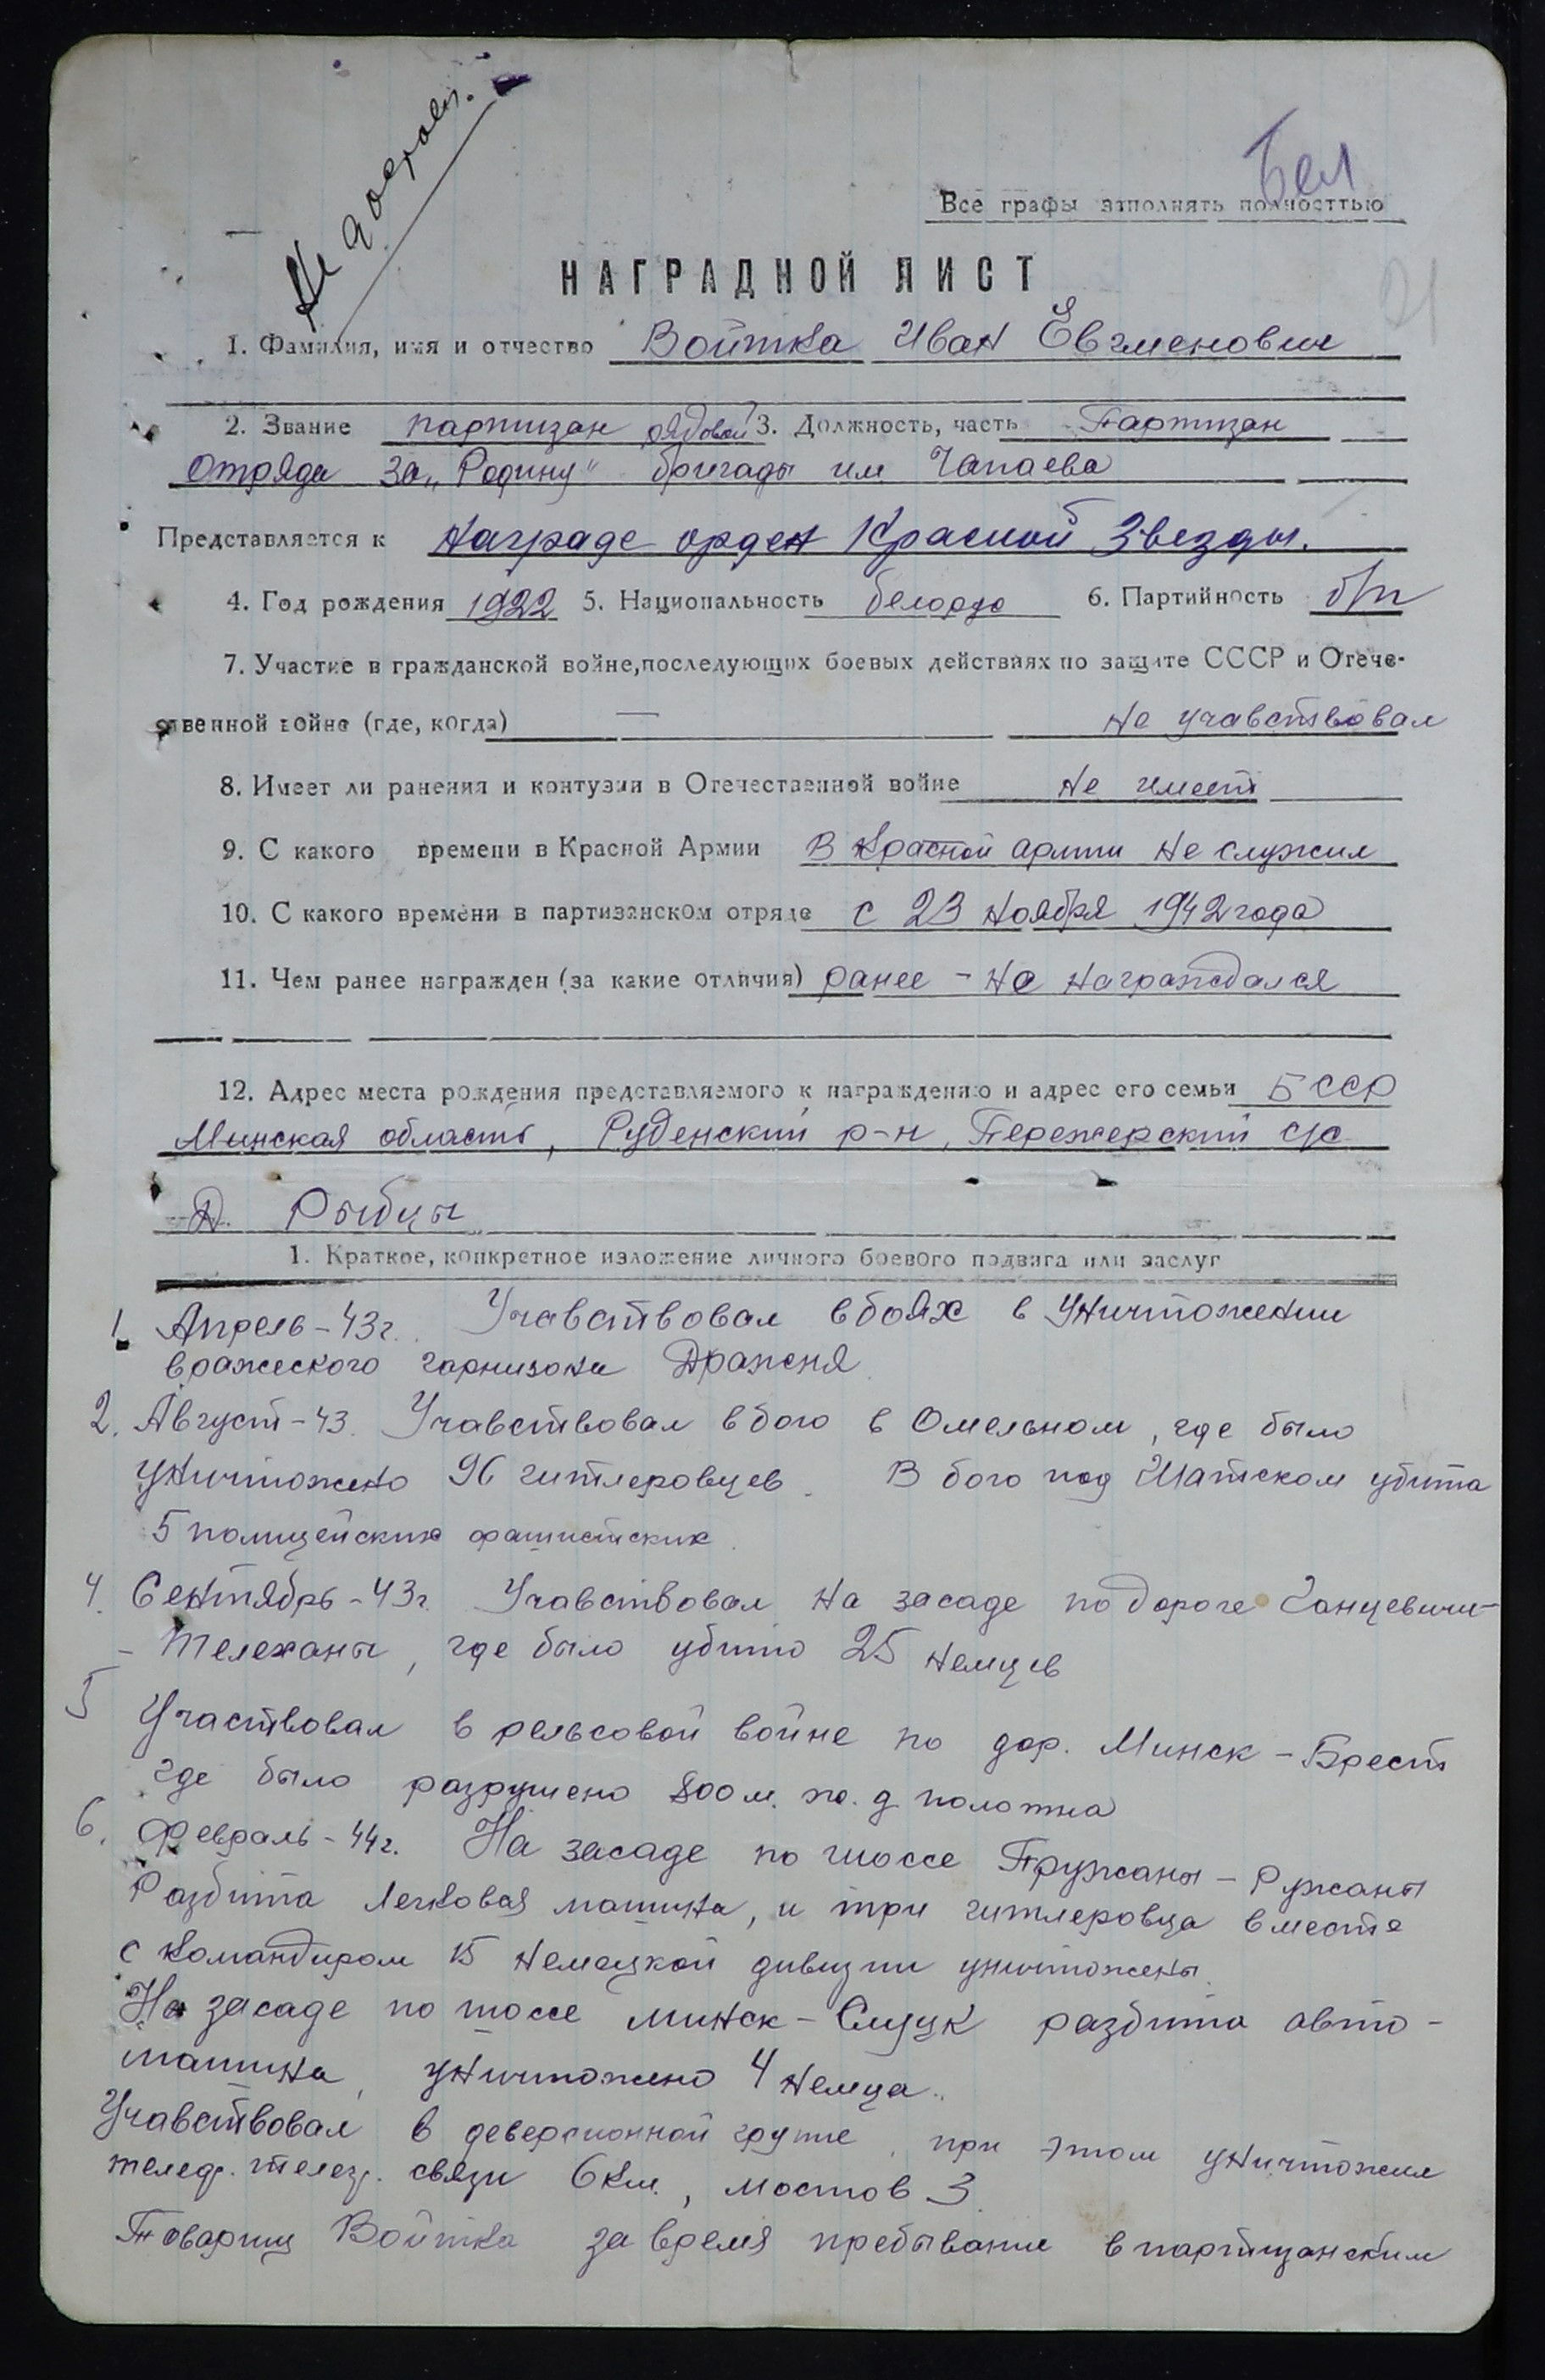 Не
Бел
Все графы заполнять полносттью
НАГРАДНОЙ ЛИСТ
1. Фамилия, имя и отчество Войтка Иван Евгменович
2. Звание партизан рядовой 3. Должность, часть Партизан
отряда За „Родину" бригады им Чапаева
Представляется к награде орден Красной Звезды.
4. Год рождения 1922 5. Национальность белорус 6. Партийность б/п
7. Участие в гражданской войне, последующих боевых действиях по защите СССР и Отече-
ственной войне (где, когда) — не учавствовал
8. Имеет ли ранения и контузии в Отечественной войне не имеет
9. С какого времени в Красной Армии В Красной армии не служил
10. С какого времени в партизанском отряде с 23 ноября 1942 года
11. Чем ранее награжден (за какие отличия) ранее - не награждался
12. Адрес места рождения представляемого к награждению и адрес его семьи БССР
Минская область, Руденский р-н, Пережерский с/с
Д. Рыбцы
1. Краткое, конкретное изложение личного боевого подвига или заслуг
1. Апрель-43г. Учавствовал в боях в уничтожении
вражеского гарнизона Дражня
2. Август-43. Учавствовал в бою в Омельном, где было
уничтожено 96 гитлеровцев. В бою под Шатском убита
5 полицейских фашистских.
4. Сентябрь-43г. Учавствовал на засаде по дороге Ганцевичи-
- Телеханы, где было убито 25 немцев
5 Участвовал в рельсовой войне по дор. Минск - Брест
где было разрушено 800 м. ж. д полотна
6. Февраль-44г. На засаде по шоссе Пружаны - Ружаны
Разбита легковая машина, и три гитлеровца вместе
с командиром 15 немецкой дивизии уничтожены.
На засаде по шоссе Минск - Слуцк разбита авто-
машина, уничтожено 4 немца.
Учавствовал в деверсионной группе, при этом уничтожил
телег. связи 6 км., мостов 3.
Товарищ Войтка за время пребывание в партизанским